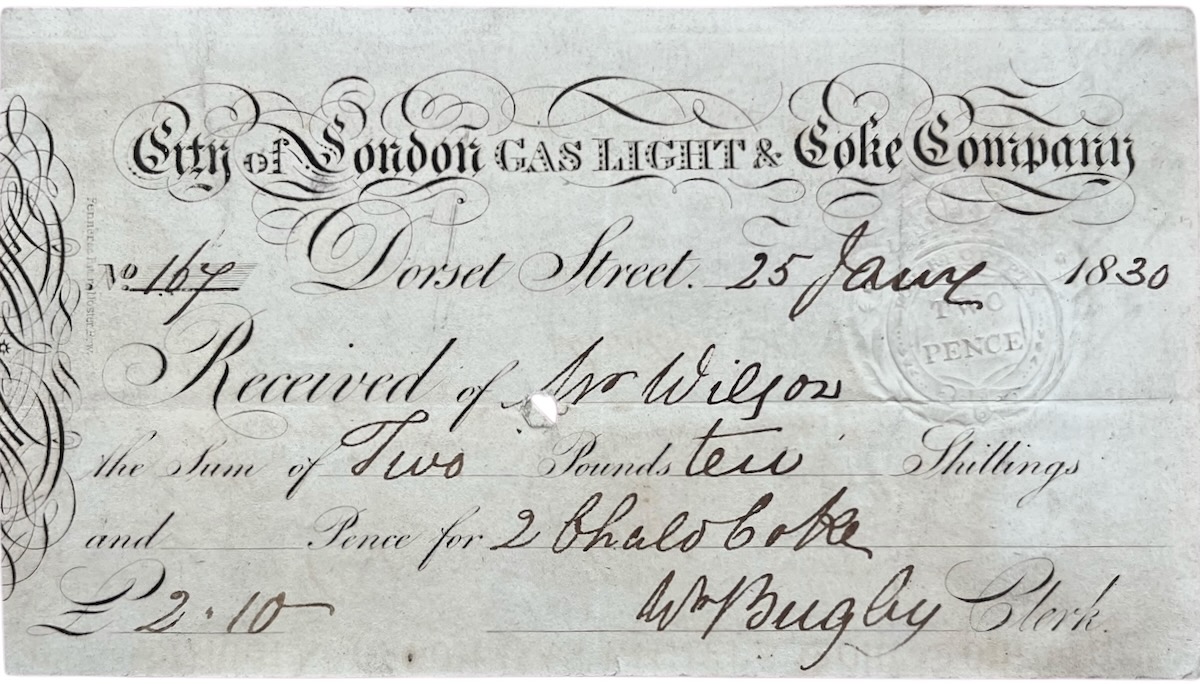 City of London GAS LIGHT & Coke Company
No 167 Dorset Street. 25 Jany 1830
TWO
PENCE
Received of Mr Wilson
the Sum of Two Pounds ten Shillings
and Pence for 2 Chald Coke
£ 2.10 Wm Bugby Clerk.